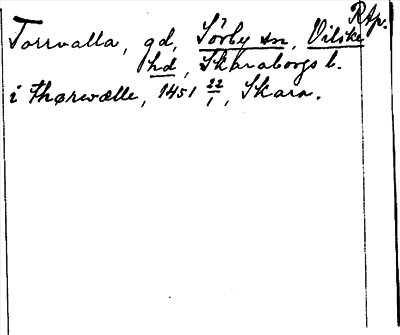 Rtp.
Torrvalla, gd, Sörby sn, Vilske
hd, Skaraborgs l.
i thørwalle, 1451 22/1, Skara.